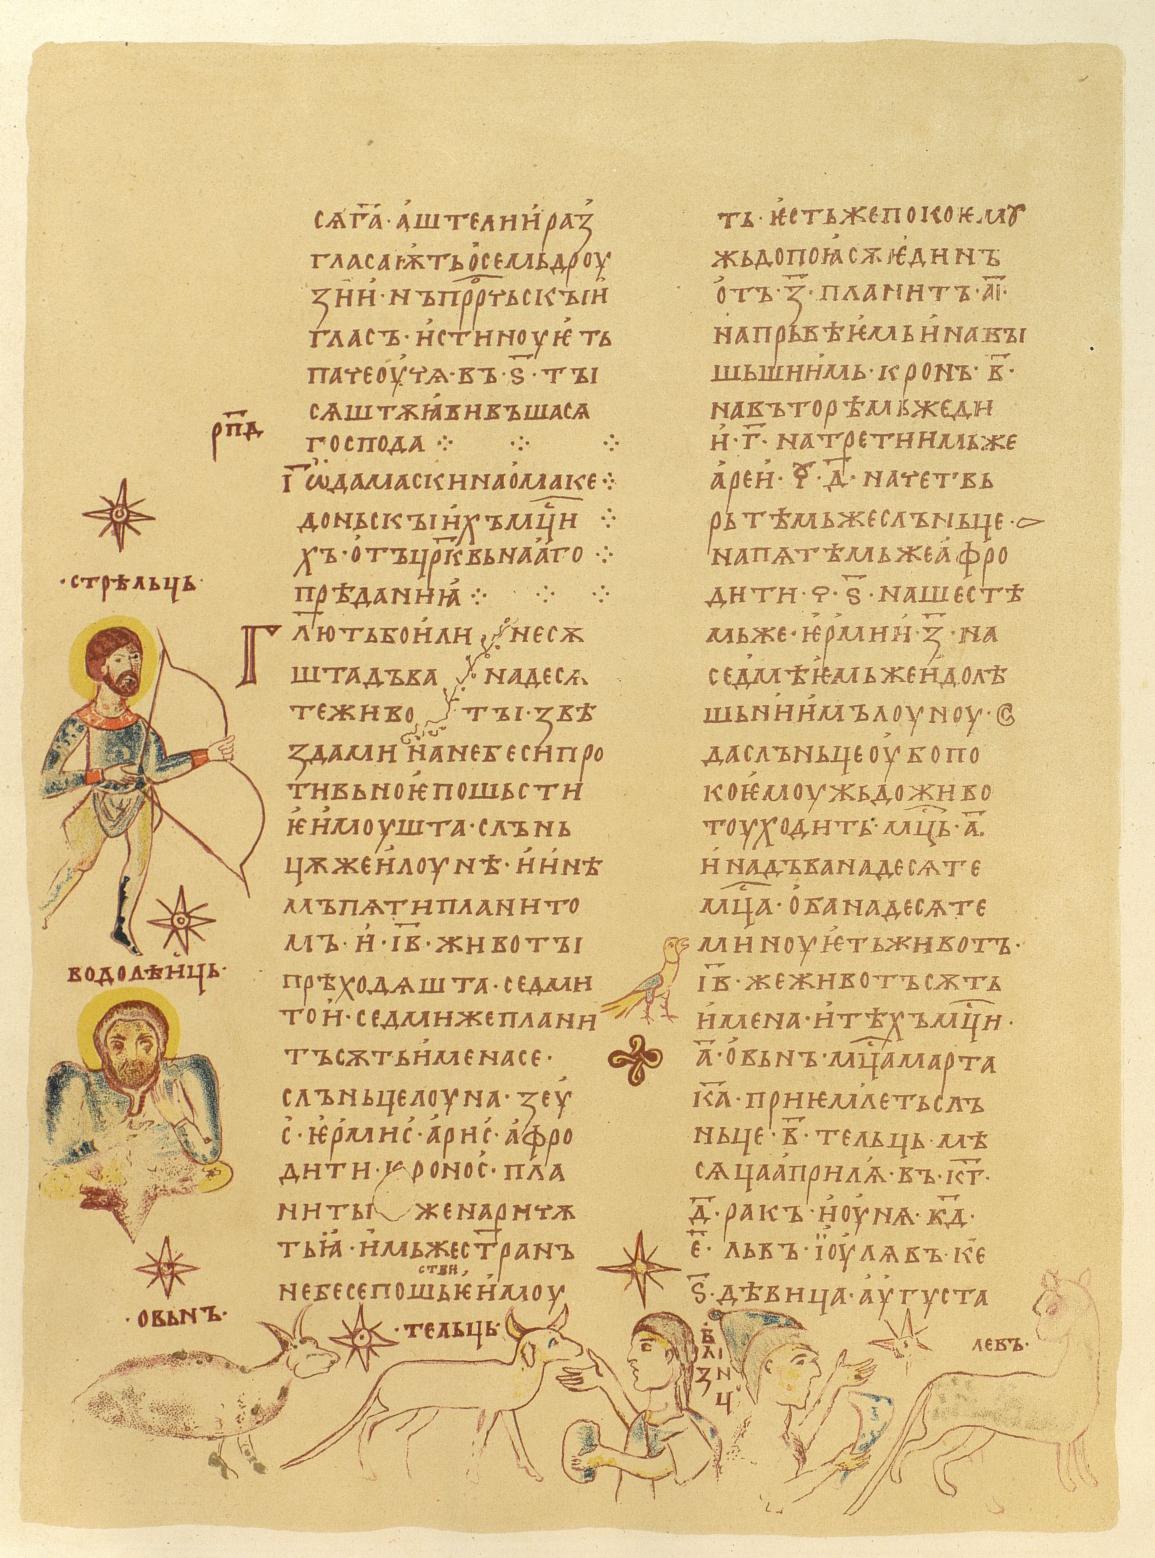 СѦГА҃·АШТЕЛИИРАЗ
ГЛАСАѤТЬОСЕМЬДРОУ
ЗИИ·НЪПРРЧЬСКЪІИ
ГЛАСЪ·ИСТИНОУѤТЬ
ПАЧЕОУЧѦ·ВЪ·Ѕ҃·ТЪІ
СѦШТѪꙖВИВЪШАСѦ
РП҃Д
ГОСПОДА ⁘ ⁘ ⁘
І҃Ѡ҃ДАМАСКИНАОМАКЕ⁘
ДОНЬСКЪІИХЪМЦ҃И ⁘
ХЪ·ОТЪЦР҃КВЬНААГО ⁘
ПРѢДАНИꙖ ⁘ ⁘ ⁘
ГЛ҃ЮТЬБОИЛИ НЕСѪ
ШТАДЪВА НАДЕСѦ
ТЕЖИВО ТЪІ·ЗВѢ
ЗДАМИ НАНЕБЕСИПРО
ТИВЬНОѤПОШЬСТИ
ѤИМОУШТА·СЛЪНЬ
ЦѪЖЕИЛОУНѢ·ИИНѢ
МЪПѦТИПЛАНИТО
МЪ·И·І҃В·ЖИВОТЪІ
ПРѢХОДѦШТА·СЕДМИ
ТОИ·СЕДМИЖЕПЛАНИ
ТЪСѪТЬИМЕНАСЕ·
СЛЪНЬЦЕЛОУНА·ЗЕУ
С·ѤРМИС·АРИС·АФРО
ДИТИ·КРОНОС·ПЛА
НИТЫ ЖЕНАРИЧѪ
ТЬꙖ·ИМЬЖЕСТРАНЪ
СТВИ
НЕБЕСЕПОШЬѤИМОУ
ТЬ·ѤСТЬЖЕПОКОѤМУ
ЖЬДОПОꙖСѪѤДИНЪ
ОТЪ·З҃·ПЛАНИТЪ·А҃І·
НАПРЬВѢѤМЬИНАВЪІ
ШЬШИИМЬ·КРОНЪ·В҃·
НАВЪТОРѢМЬЖЕДИ
И·Г҃·НАТРЕТИИМЬЖЕ
АРЕИ·♀·Д҃·НАЧЕТВЬ
РЬТѢМЬЖЕСЛЪНЬЦЕ·
НАПѦТѢМЬЖЕАФРО
ДИТИ·♀·Ѕ҃·НАШЕСТѢ
МЬЖЕ·ѤРМИИ·З҃·НА
СЕДМѢѤМЬЖЕИДОЛѢ
ШЬНИИМЪЛОУНОУ·
ДАСЛЪНЬЦЕОУБОПО
КОѤМОУЖЬДОЖИВО
ТОУХОДИТЬ·МЦ҃Ь·А҃.
ИНАДЪВАНАДЕСѦТЕ
МЦ҃А·ОБАНАДЕСѦТЕ
МИНОУѤТЬЖИВОТЪ·
І҃В·ЖЕЖИВОТЪСѪТЬ
ИМЕНА·ИТѢХЪМЦ҃И·
А҃·ОВЬНЪ·МЦ҃АМАРТА
К҃А·ПРИѤМЛЕТЬСЛЪ
НЬЦЕ·В҃·ТЕЛЬЦЬ·МѢ
СѦЦААПРИЛѦ·ВЪ·К҃Г·
Д҃·РАКЪ·ИОУНѦ·К҃Д·
Е҃·ЛЬВЪ·ІОУЛѦВЪ·К҃Е
Ѕ҃·ДѢВИЦА·АУГУСТА
·СТРѢЛЬЦЬ·
ВОДОЛѢИЦЬ·
·ОВЬНЪ·
·ТЕЛЬЦЬ·
БЛІЗНЦ
ЛЕВЪ·